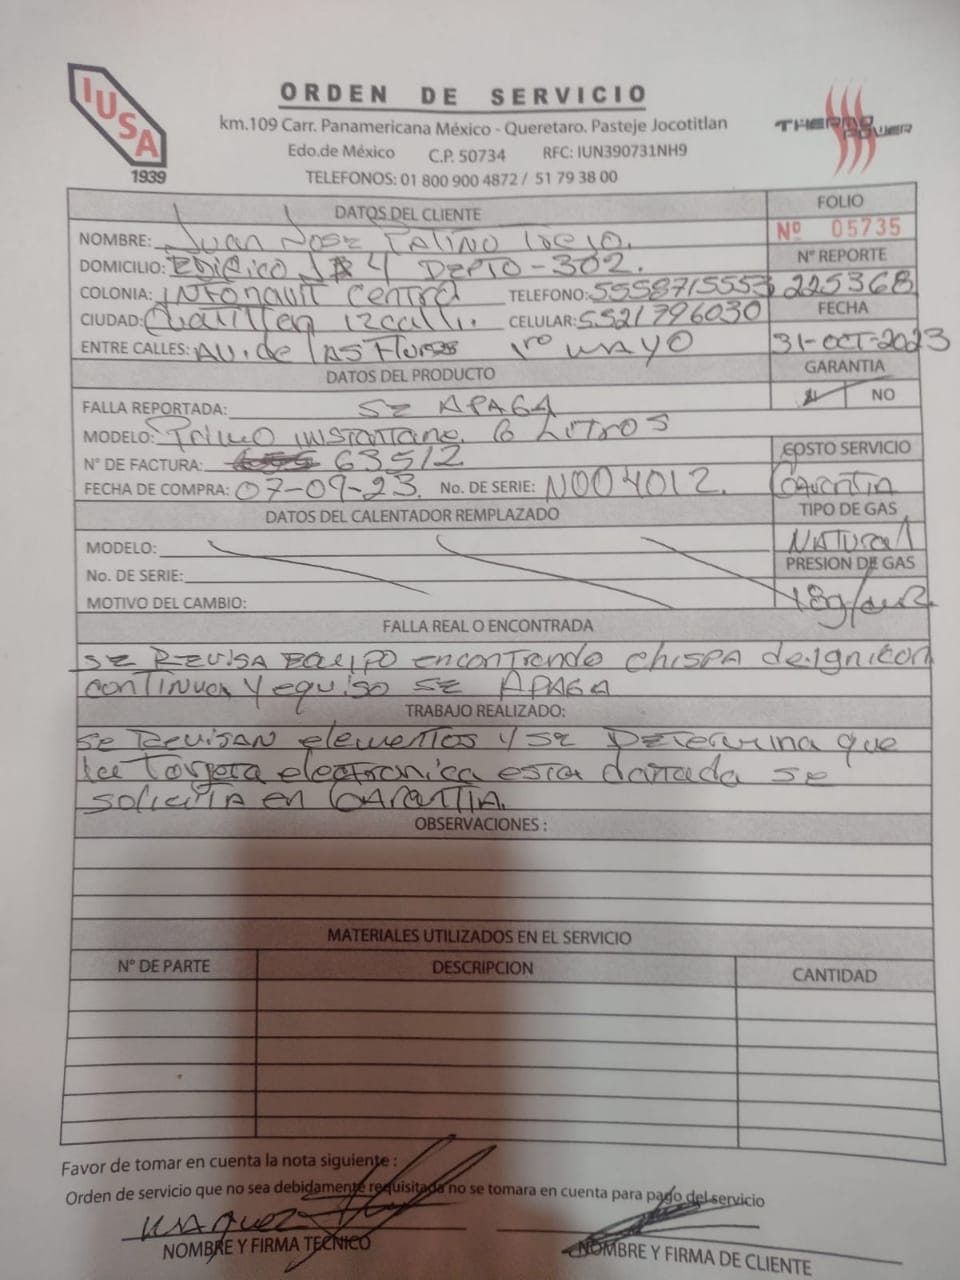 IUSA
1939
ORDEN DE SERVICIO
km.109 Carr. Panamericana México - Queretaro. Pasteje Jocotitlan
Edo.de México C.P. 50734 RFC: IUN390731NH9
TELEFONOS: 01 800 900 4872 / 51 79 38 00
THERMO POWER
DATOS DEL CLIENTE
FOLIO
Nº 05735
NOMBRE: Juan Jose
DOMICILIO: Edificio 4 DEPTO-302.
Nº REPORTE
225368
COLONIA: INFONAVIT Central TELEFONO: 5558715553
CIUDAD: Cuautitlan izcalli. CELULAR: 5521796030
FECHA
31-OCT-2023
ENTRE CALLES: AV. de las Flores 1ro MAYO
DATOS DEL PRODUCTO
GARANTIA
NO
FALLA REPORTADA: SE APAGA
MODELO: instantano. 6 LITROS
Nº DE FACTURA: 63512
COSTO SERVICIO
Garantia
FECHA DE COMPRA: 07-09-23. No. DE SERIE: N004012.
DATOS DEL CALENTADOR REMPLAZADO
TIPO DE GAS
NATURAL
MODELO:
PRESION DE GAS
18g/cm2
No. DE SERIE:
MOTIVO DEL CAMBIO:
FALLA REAL O ENCONTRADA
SE REVISA EQUIPO encontrando CHISPA de ignicion
continua y equipo SE APAGA
TRABAJO REALIZADO:
se revisan elementos y se Determina que
la Tarjeta electronica esta dañada se
SOLICITA en GARANTIA.
OBSERVACIONES :
MATERIALES UTILIZADOS EN EL SERVICIO
Nº DE PARTE DESCRIPCION CANTIDAD
Favor de tomar en cuenta la nota siguiente :
Orden de servicio que no sea debidamente requisitada no se tomara en cuenta para pago del servicio
NOMBRE Y FIRMA TECNICO
NOMBRE Y FIRMA DE CLIENTE